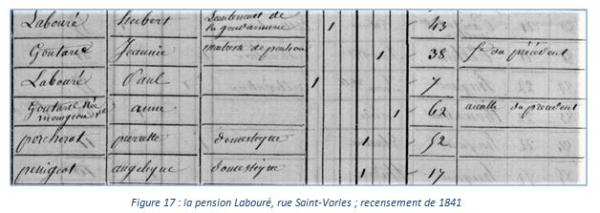 Labouré hubert Lieutenant de la gendarmerie 1 43
Goutard Jeannie maitresse de pension 1 38 fe du précédent
Labouré Paul 1 7
Goutard Née
anne 1 62 du precedent
porcherot pierrette domestique 1 52
penigot angelique domestique 1 17
Figure 17 : la pension Labouré, rue Saint-Vorles ; recensement de 1841